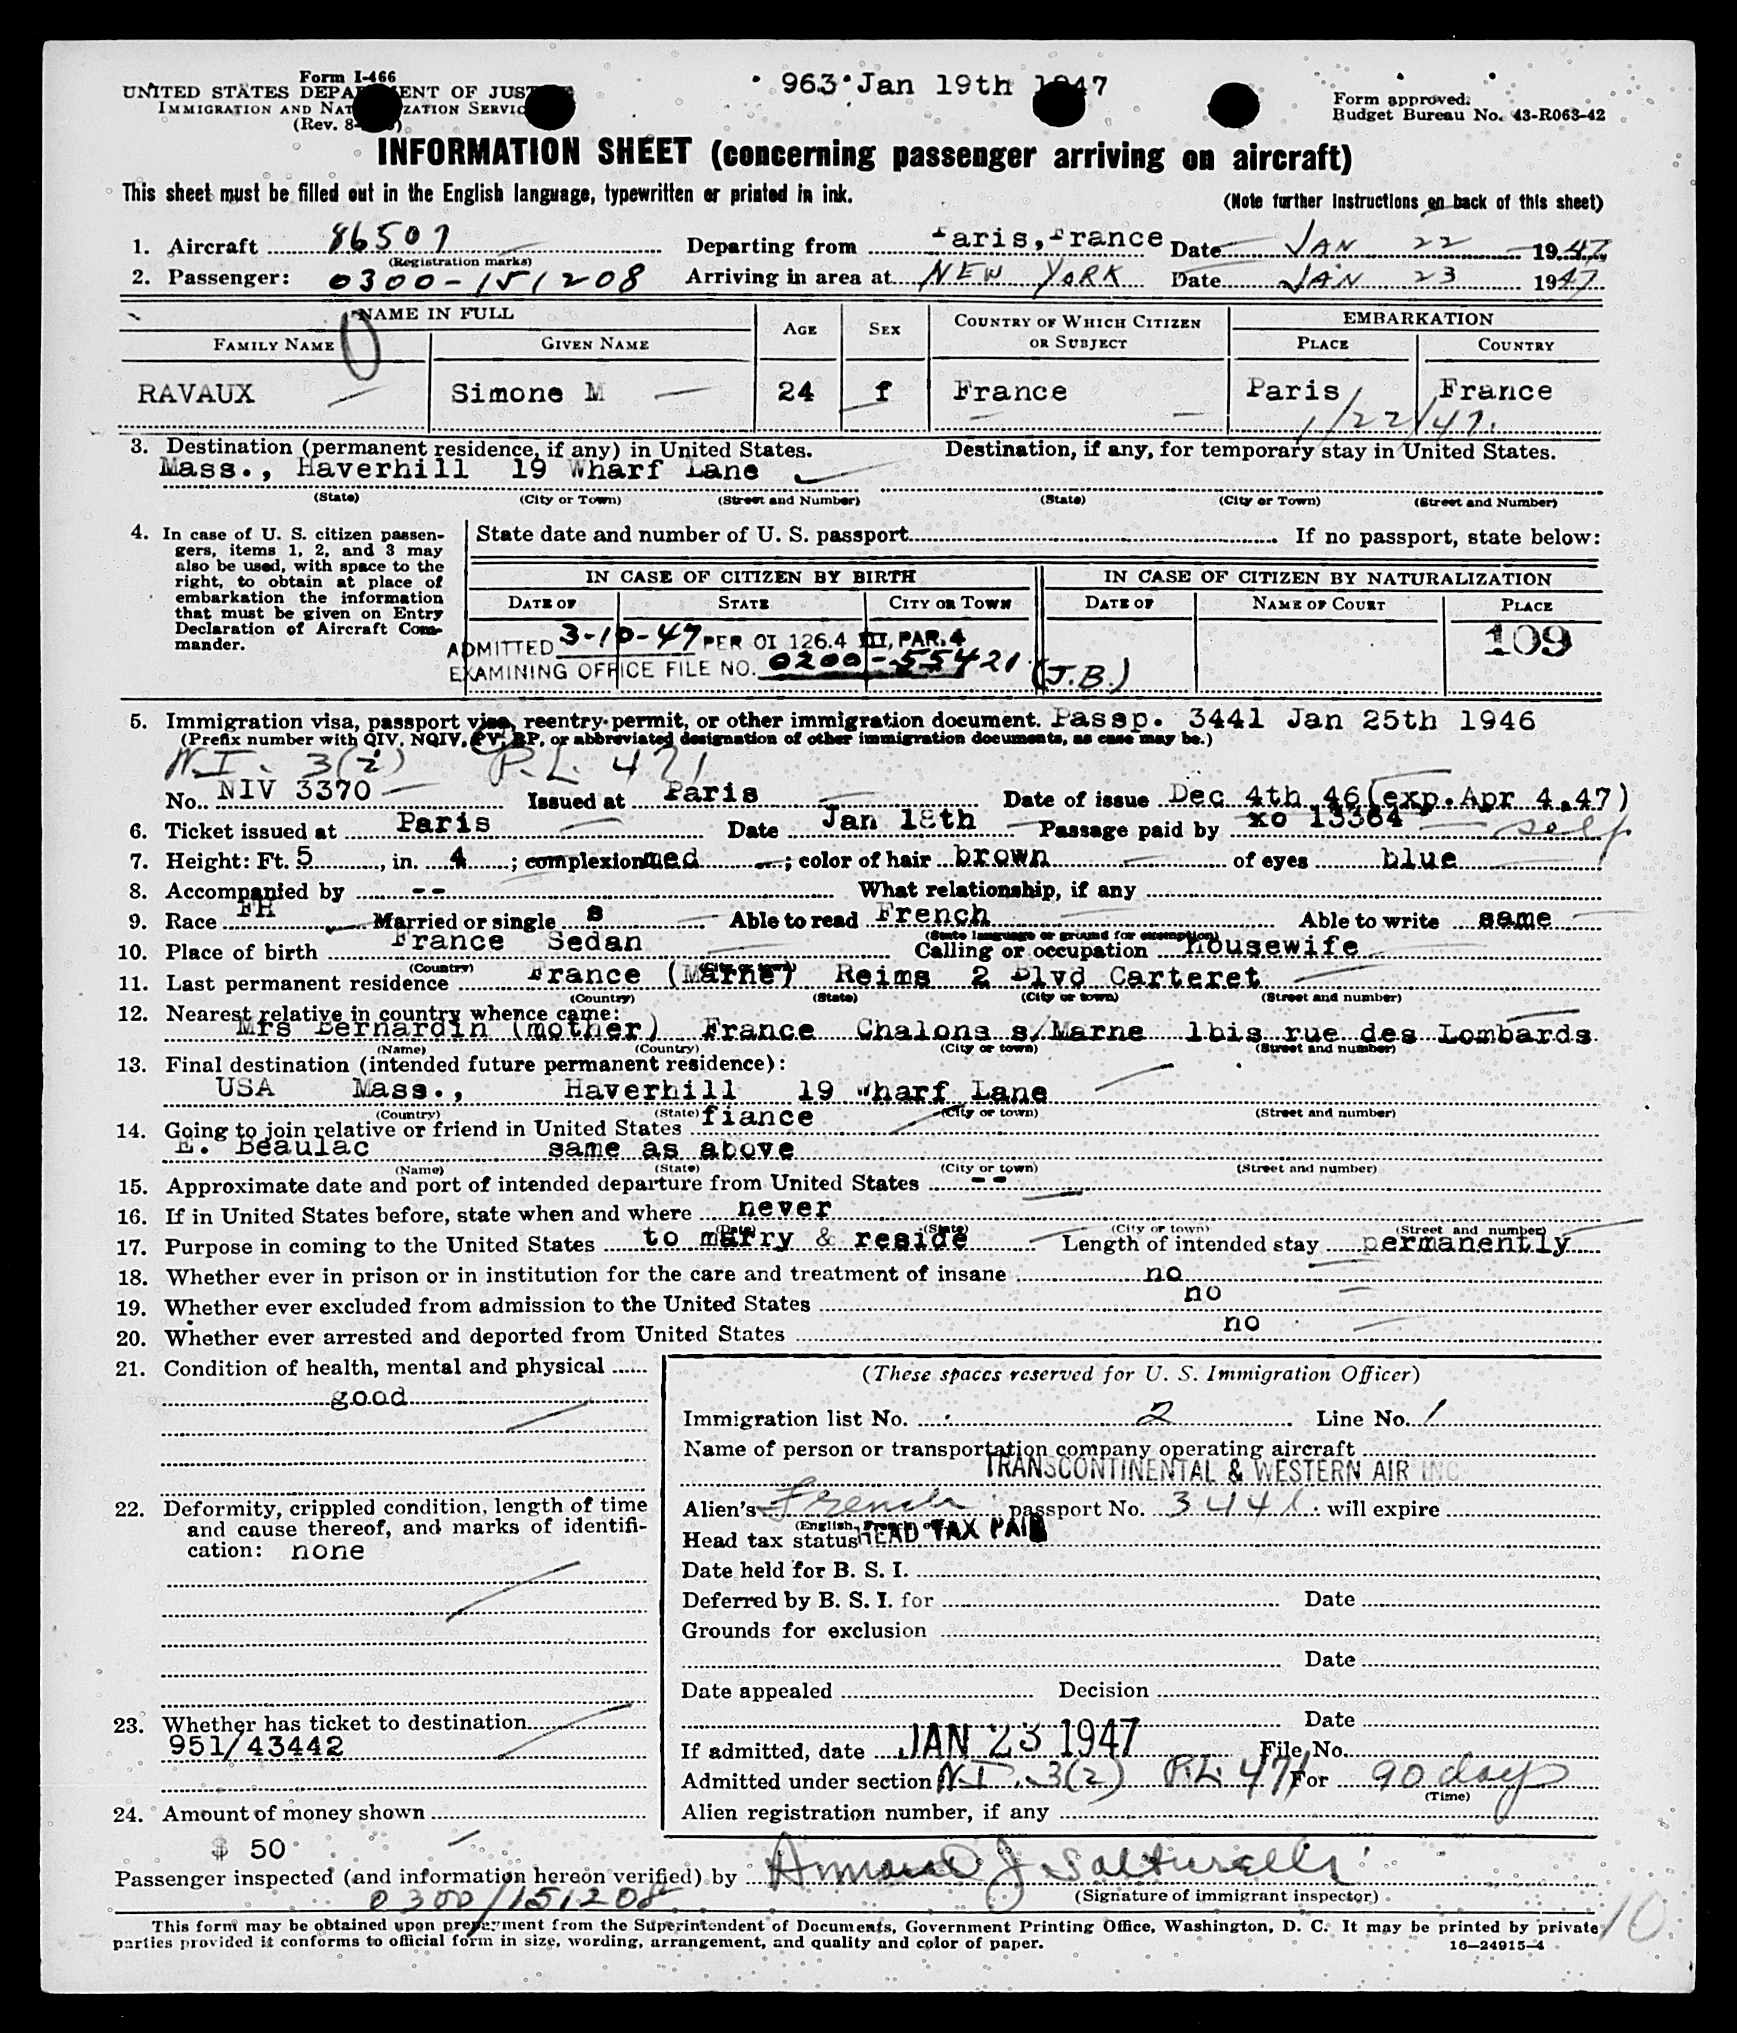 963 Jan 19th 1947
Form I-466
UNITED STATES DEPARTMENT OF JUSTICE
IMMIGRATION AND NATURALIZATION SERVICE
(Rev. 8-
Form approved.
Budget Bureau No. 43-R063-42
INFORMATION SHEET (concerning passenger arriving on aircraft)
This sheet must be filled out in the English language, typewritten or printed in ink.
(Note further instructions on back of this sheet)
1. Aircraft 86507 Departing from Paris, France Date JAN 22 1947
(Registration marks)
2. Passenger: 0300-151208 Arriving in area at NEW YORK Date JAN 23 1947
NAME IN FULL
FAMILY NAME GIVEN NAME AGE SEX COUNTRY OF WHICH CITIZEN OR SUBJECT EMBARKATION PLACE COUNTRY
RAVAUX Simone M 24 f France Paris France
1/22/47.
3. Destination (permanent residence, if any) in United States. Destination, if any, for temporary stay in United States.
Mass., Haverhill 19 Wharf Lane
(State) (City or Town) (Street and Number) (State) (City or Town) (Street and Number)
4. In case of U. S. citizen passen-
gers, items 1, 2, and 3 may
also be used, with space to the
right, to obtain at place of
embarkation the information
that must be given on Entry
Declaration of Aircraft Com-
mander.
State date and number of U. S. passport If no passport, state below:
IN CASE OF CITIZEN BY BIRTH IN CASE OF CITIZEN BY NATURALIZATION
DATE OF STATE CITY OR TOWN DATE OF NAME OF COURT PLACE
109
ADMITTED 3-10-47 PER OI 126.4 III, PAR. 4
EXAMINING OFFICE FILE NO. 0200-55421 (J.B.)
5. Immigration visa, passport visa, reentry permit, or other immigration document. Passp. 3441 Jan 25th 1946
(Prefix number with QIV, NQIV, PV, RP, or abbreviated designation of other immigration documents, as case may be.)
N.I. 3(2) P.L. 471
No. NIV 3370 Issued at Paris Date of issue Dec 4th 46(exp.Apr 4.47)
6. Ticket issued at Paris Date Jan 18th Passage paid by xo 13364 self
7. Height: Ft. 5, in. 4; complexion med; color of hair brown of eyes blue
8. Accompanied by -- What relationship, if any
9. Race FR Married or single s Able to read French Able to write same
(State language or ground for exemption)
10. Place of birth France Sedan Calling or occupation housewife
(Country) (City or town)
11. Last permanent residence France (Marne) Reims 2 Blvd Carteret
(Country) (State) (City or town) (Street and number)
12. Nearest relative in country whence came:
Mrs Bernardin (mother) France Chalons s/Marne 1bis rue des Lombards
(Name) (Country) (City or town) (Street and number)
13. Final destination (intended future permanent residence):
USA Mass., Haverhill 19 Wharf Lane
(Country) (State) (City or town) (Street and number)
14. Going to join relative or friend in United States fiance
E. Beaulac same as above
(Name) (State) (City or town) (Street and number)
15. Approximate date and port of intended departure from United States --
16. If in United States before, state when and where never
(Date) (State) (City or town) (Street and number)
17. Purpose in coming to the United States to marry & reside Length of intended stay permanently
18. Whether ever in prison or in institution for the care and treatment of insane no
19. Whether ever excluded from admission to the United States no
20. Whether ever arrested and deported from United States no
21. Condition of health, mental and physical
good
22. Deformity, crippled condition, length of time
and cause thereof, and marks of identifi-
cation: none
23. Whether has ticket to destination
951/43442
24. Amount of money shown
$ 50
(These spaces reserved for U. S. Immigration Officer)
Immigration list No. 2 Line No. 1
Name of person or transportation company operating aircraft
TRANSCONTINENTAL & WESTERN AIR INC
Alien's French passport No. 3441 will expire
(English, French,
Head tax status HEAD TAX PAID
Date held for B. S. I.
Deferred by B. S. I. for Date
Grounds for exclusion
Date
Date appealed Decision
Date
If admitted, date JAN 23 1947 File No.
Admitted under section N.I. 3(2) P.L. 471 For 90 days
(Time)
Alien registration number, if any
Passenger inspected (and information hereon verified) by
(Signature of immigrant inspector)
0300/151208
This form may be obtained upon prepayment from the Superintendent of Documents, Government Printing Office, Washington, D. C. It may be printed by private
parties provided it conforms to official form in size, wording, arrangement, and quality and color of paper. 16—24915-4
10